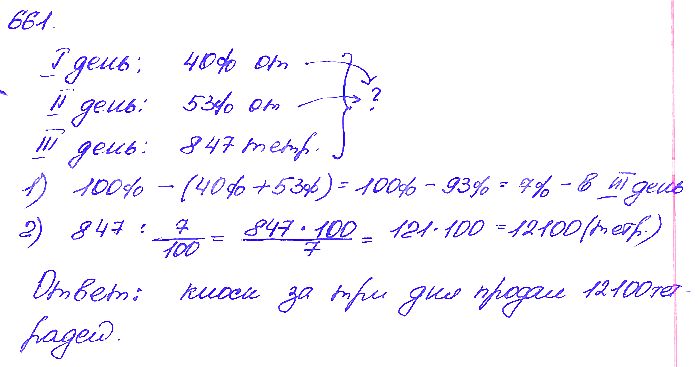 661.
I день: 40% от
II день: 53% от ?
III день: 847 тетр.
1) 100% - (40% + 53%) = 100% - 93% = 7% - в III день
2) 847 : 7/100 = 847 · 100/7 = 121 · 100 = 12100 (тетр.)
Ответ: киоск за три дня продал 12100 тет-
радей.